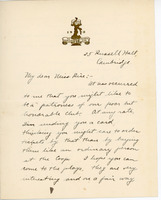 25 Russell Hall,
Cambridge.
My dear Miss Hine:-
It has occurred
to me that you might like to
be a patroness of our poor but
honorable Club. At any
rate I'm sending you a card
thinking you might care to order
by that than by buying
them like an ordinary person
at the Coop. I hope you can
come to the plays. They are very
interesting and in a fair way